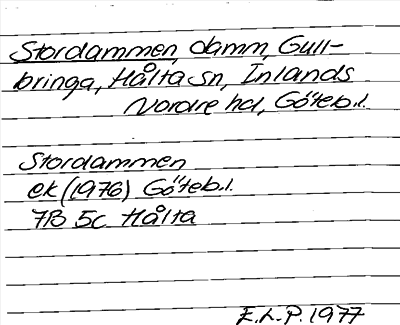 Stordammen, damm, Gull-
bringa, Hålta sn, Inlands
Nordre hd, Göteb.l.
Stordammen
ek (1976) Göteb.l.
7B 5c Hålta
E.L.P. 1977